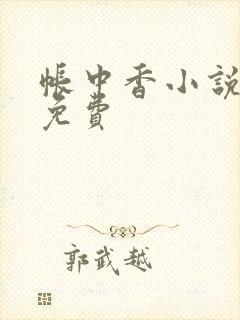 帳中香小說
免費
郭武越